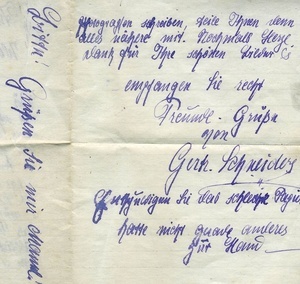 schreiben, teile Ihnen dann
alles nähere mit. Nochmals Herzl.
Dank für Ihre schönen Lieder &
empfangen Sie recht
Freundl. Grüße
von
Gerh. Schneider
Entschuldigen Sie das schlechte Papier
hatte nicht gerade anderes
zur Hand
Grüßen Sie mir